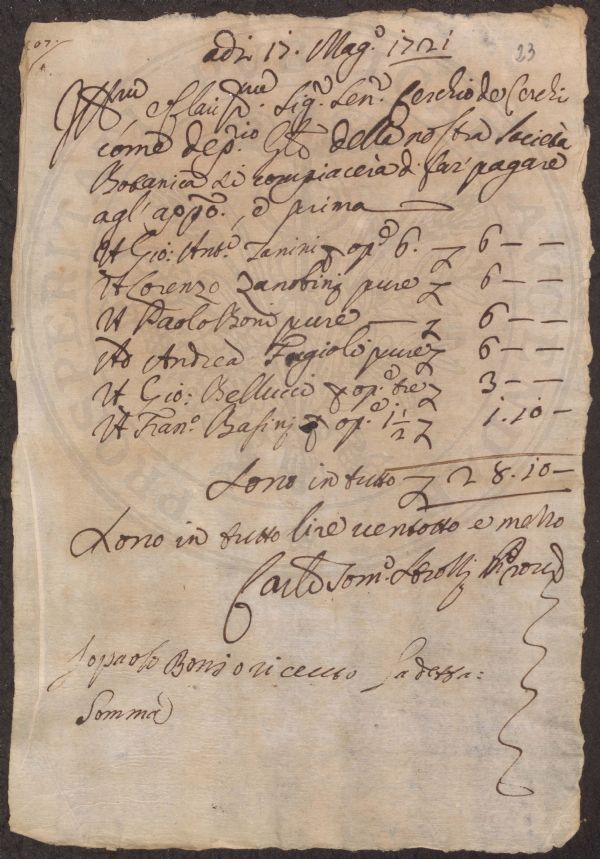 107.
adì 17. Mag.º 1721
23
Ill.mo e Clar.mo Sig.r Sen.r Cerchio de Cerchi
come dep.rio G.le della nostra Società
Botanica si compiacerà di far pagare
agl'app.ti, e prima
A Gio: Ant.º Zanini p op.e 6. 6 – –
A Lorenzo Zanobinj pure 6 – –
A Paolo Boni pure 6 – –
Ad Andrea Fagioli pure 6 – –
A Gio: Bellucci p op.e tre 3 – –
A Fran.º Basinj p op.e 1 1/2 1. 10 –
Sono in tutto 28. 10 –
Sono in tutto lire ventotto e mezzo
Carlo
Jo paolo Bonj o riceuto la detta:
Somma